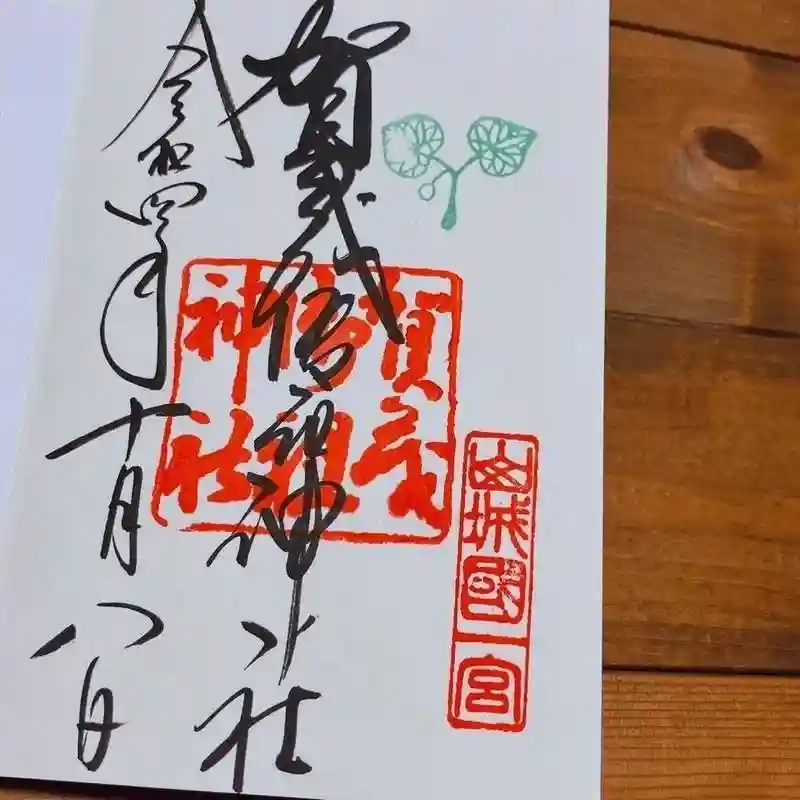 山城國一宮
賀茂御祖神社
賀茂
御祖
神社
令和四年十月八日